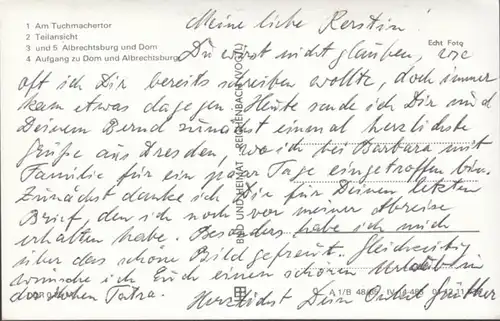 1 Am Tuchmachertor
2 Teilansicht
3 und 5 Albrechtsburg und Dom
4 Aufgang zu Dom und Albrechtsburg
Echt Foto
Meine liebe Kerstin!
Du wirst nicht glauben, wie
oft ich Dir bereits schreiben wollte, doch immer
kam etwas dagegen. Heute sende ich Dir und
Deinem Bernd zunächst einmal herzlichste
Grüße aus Dresden, wo ich bei Barbara mit
Familie für ein paar Tage eingetroffen bin.
Zunächst danke ich Dir für Deinen letzten
Brief, den ich noch vor meiner Abreise
erhalten habe. Besonders habe ich mich
über das schöne Bild gefreut. Gleichzeitig
wünsche ich Euch einen schönen Urlaub in
der Hohen Tatra.
Herzlichst Dein Onkel Günther
BILD UND HEIMAT REICHENBACH (VOGTL)
A 1/B 48/89 IV-14-483